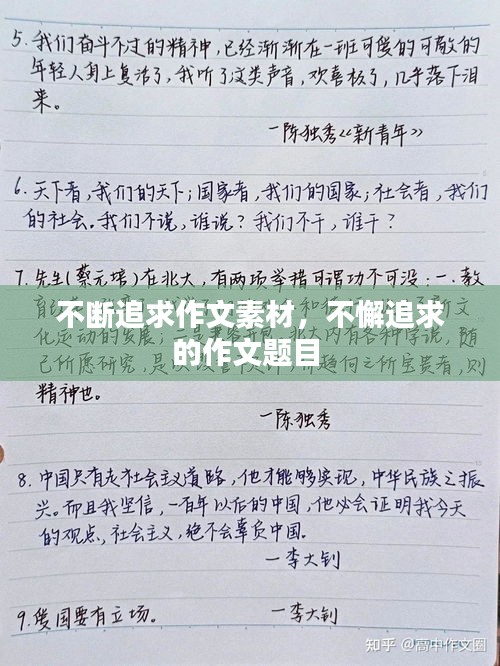 5.我们奋斗不过的精神,已经渐渐在一班可爱的可敬的
年轻人身上复活了,我听了这类声音,欢喜极了,几乎落下泪
来。
—陈独秀《新青年》
6.天下者,我们的天下;国家者,我们的国家;社会者,我们
的社会。我们不说,谁说?我们不干,谁干?
7.先生(蔡元培)在北大,有两项举措可谓功不可没:一.教
不断追求作文素材,不懈追求
的作文题目
化运动的发展;
己所愿研究,是以
精神也。
—陈独秀
8.中国只有走社会主义道路,他才能够实现,中华民族之振
兴。而且我坚信,一百年以后的中国,他必会证明我今天
的观点,社会主义,绝不会辜负中国。
—李大钊
9.爱国要有立场。 —李大钊
知乎 @高中作文圈